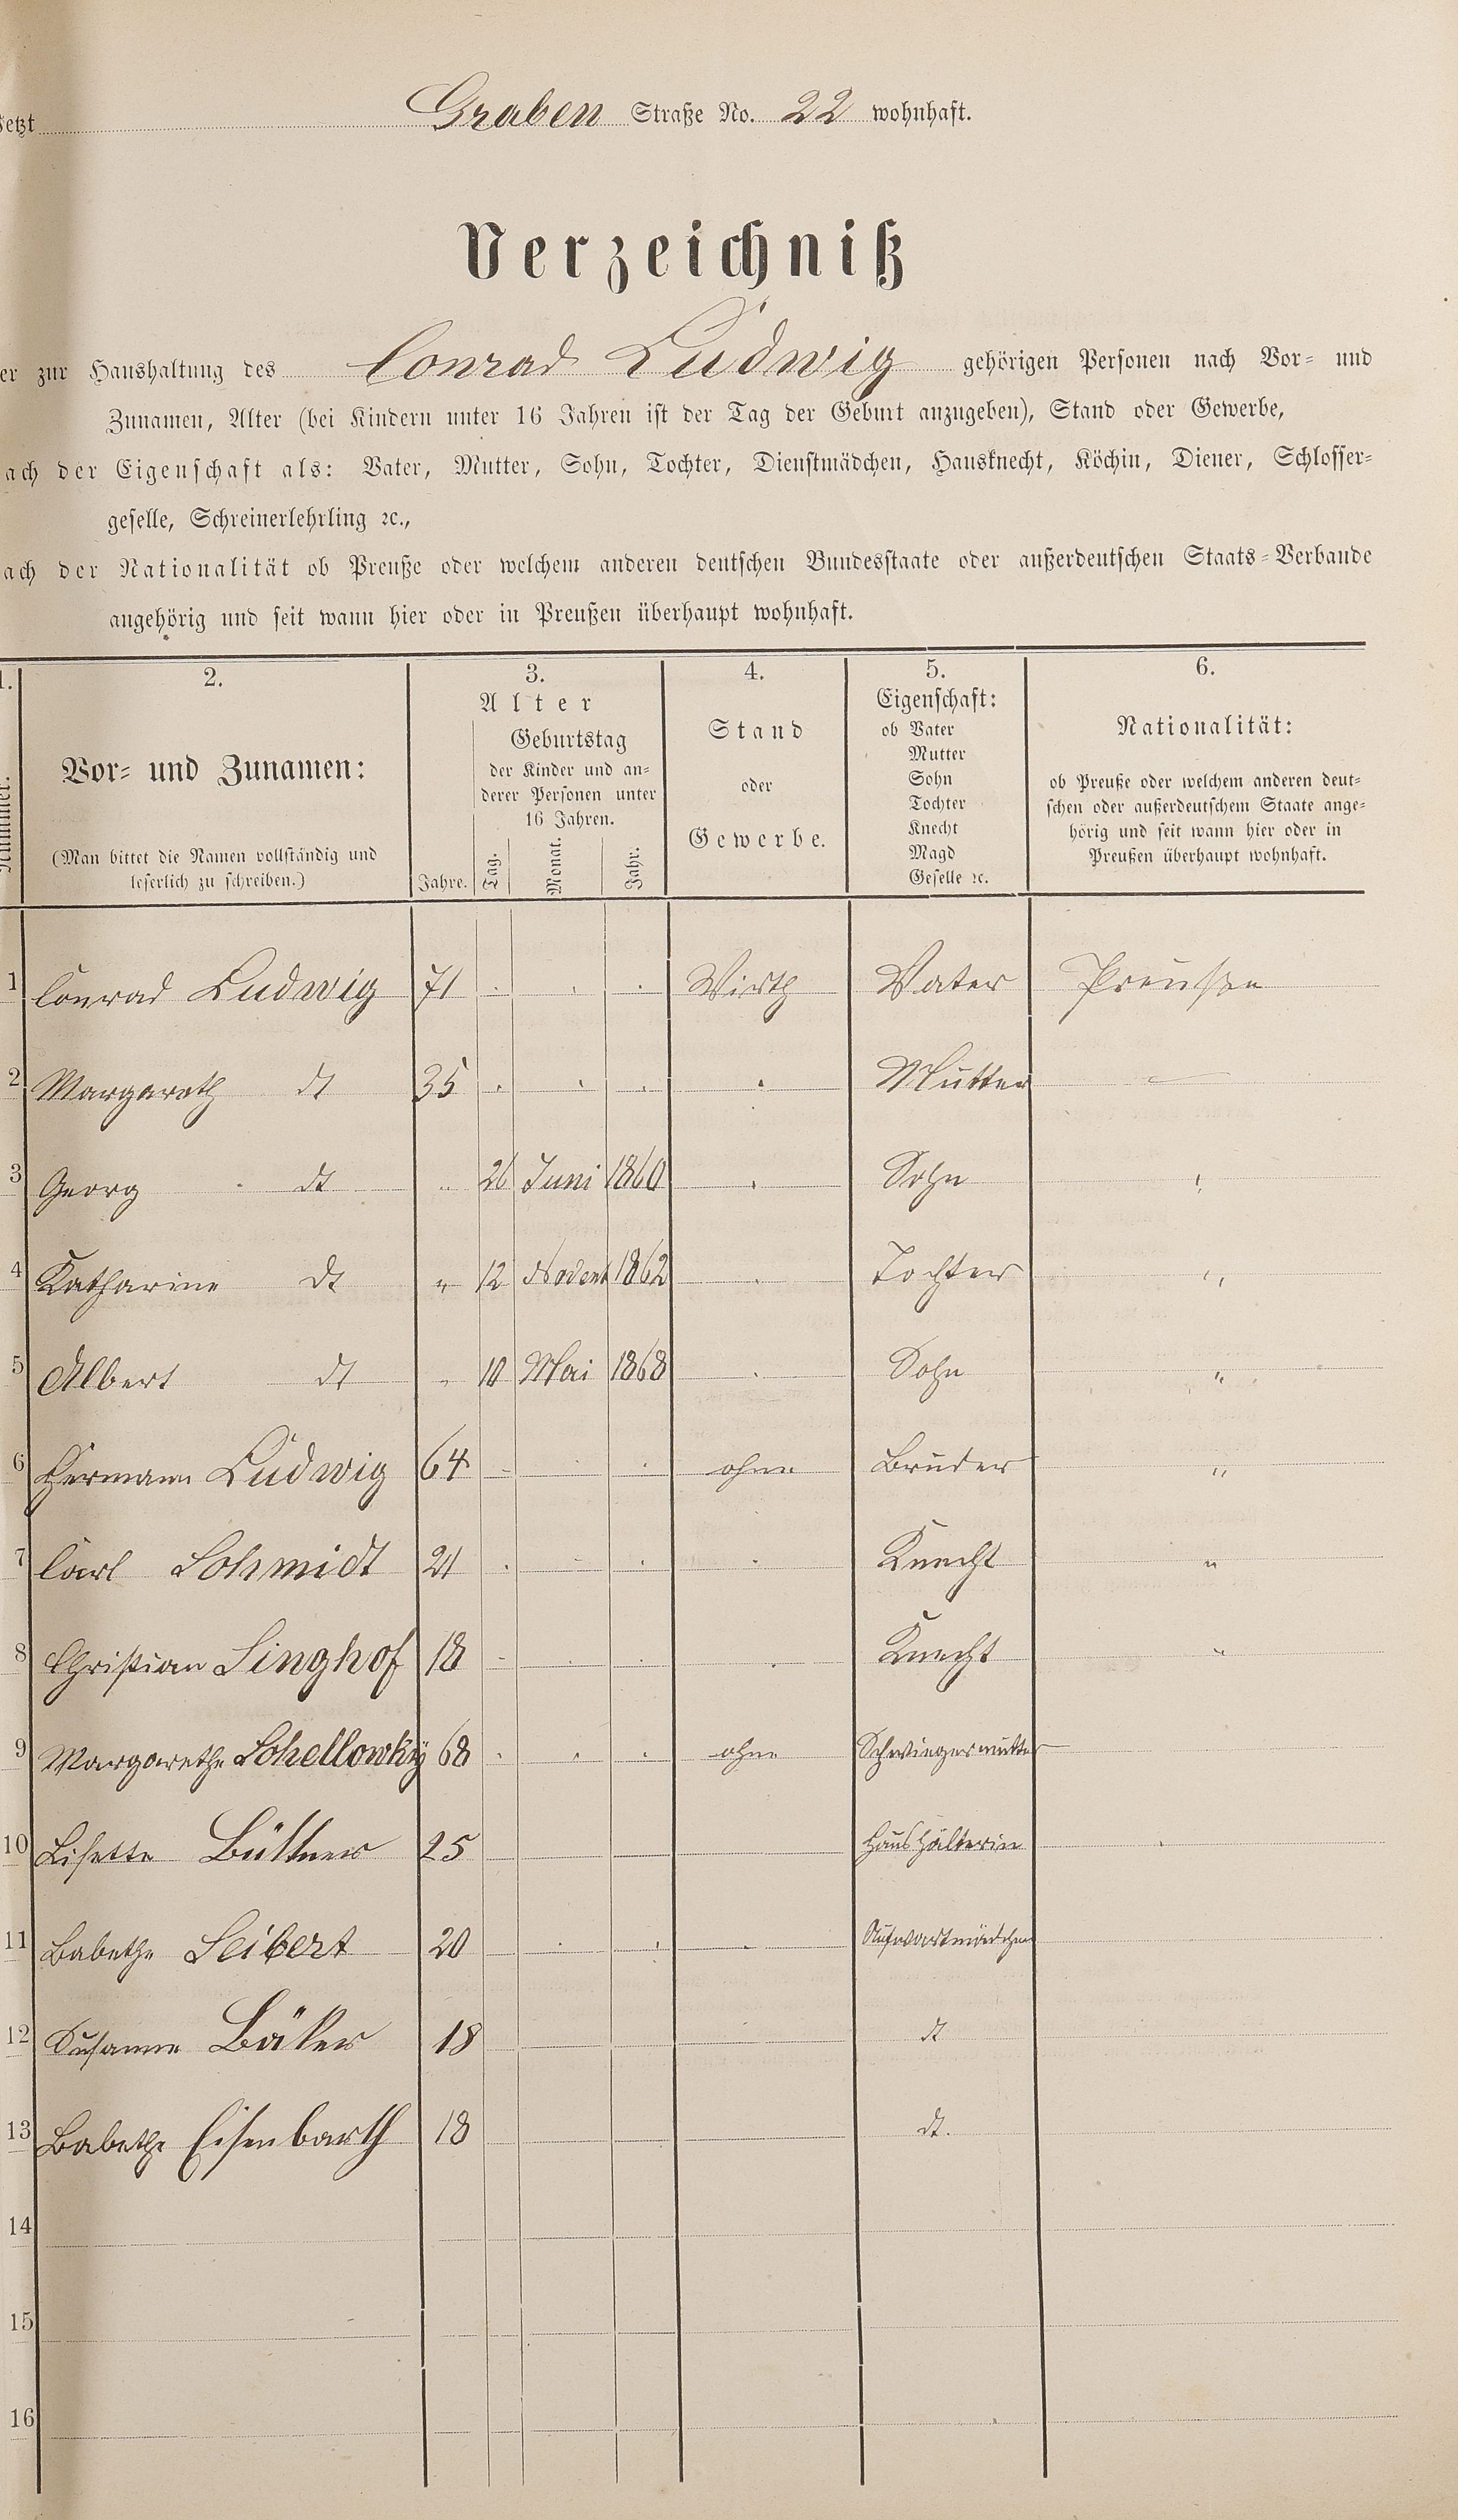 Jetzt Graben Straße No. 22 wohnhaft.
Verzeichniß
er zur Haushaltung des Conrad Ludwig gehörigen Personen nach Vor- und
Zunamen, Alter (bei Kindern unter 16 Jahren ist der Tag der Geburt anzugeben), Stand oder Gewerbe,
ach der Eigenschaft als: Vater, Mutter, Sohn, Tochter, Dienstmädchen, Hausknecht, Köchin, Diener, Schlosser-
geselle, Schreinerlehrling ꝛc.,
ach der Nationalität ob Preuße oder welchem anderen deutschen Bundesstaate oder außerdeutschen Staats-Verbande
angehörig und seit wann hier oder in Preußen überhaupt wohnhaft.
1. 2. 3. 4. 5. 6.
Nummer.
Vor- und Zunamen:
(Man bittet die Namen vollständig und
leserlich zu schreiben.)
Alter
Geburtstag
der Kinder und an-
derer Personen unter
16 Jahren.
Jahre. Tag. Monat. Jahr.
Stand
oder
Gewerbe.
Eigenschaft:
ob Vater
Mutter
Sohn
Tochter
Knecht
Magd
Geselle ꝛc.
Nationalität:
ob Preuße oder welchem anderen deut-
schen oder außerdeutschem Staate ange-
hörig und seit wann hier oder in
Preußen überhaupt wohnhaft.
1 Conrad Ludwig 71 Wirth Vater Preußen
2 Margareth dt 35 Mutter
3 Georg dt " 26 Juni 1860 Sohn "
4 Katharine dt " 12 Novemb 1862 Tochter "
5 Albert dt " 10 Mai 1868 Sohn "
6 Hermann Ludwig 64 ohne Bruder "
7 Carl Schmidt 21 Knecht "
8 Christian Singhof 18 Knecht "
9 Margarethe Schellowky 68 ohne Schwiegermutter
10 Lisette Büttner 25 Haushälterin
11 Babethe Seibert 20 Aufwartmädchen
12 Susanne Bäker 18 dt
13 Babethe Eisenbarth 18 dt.
14
15
16